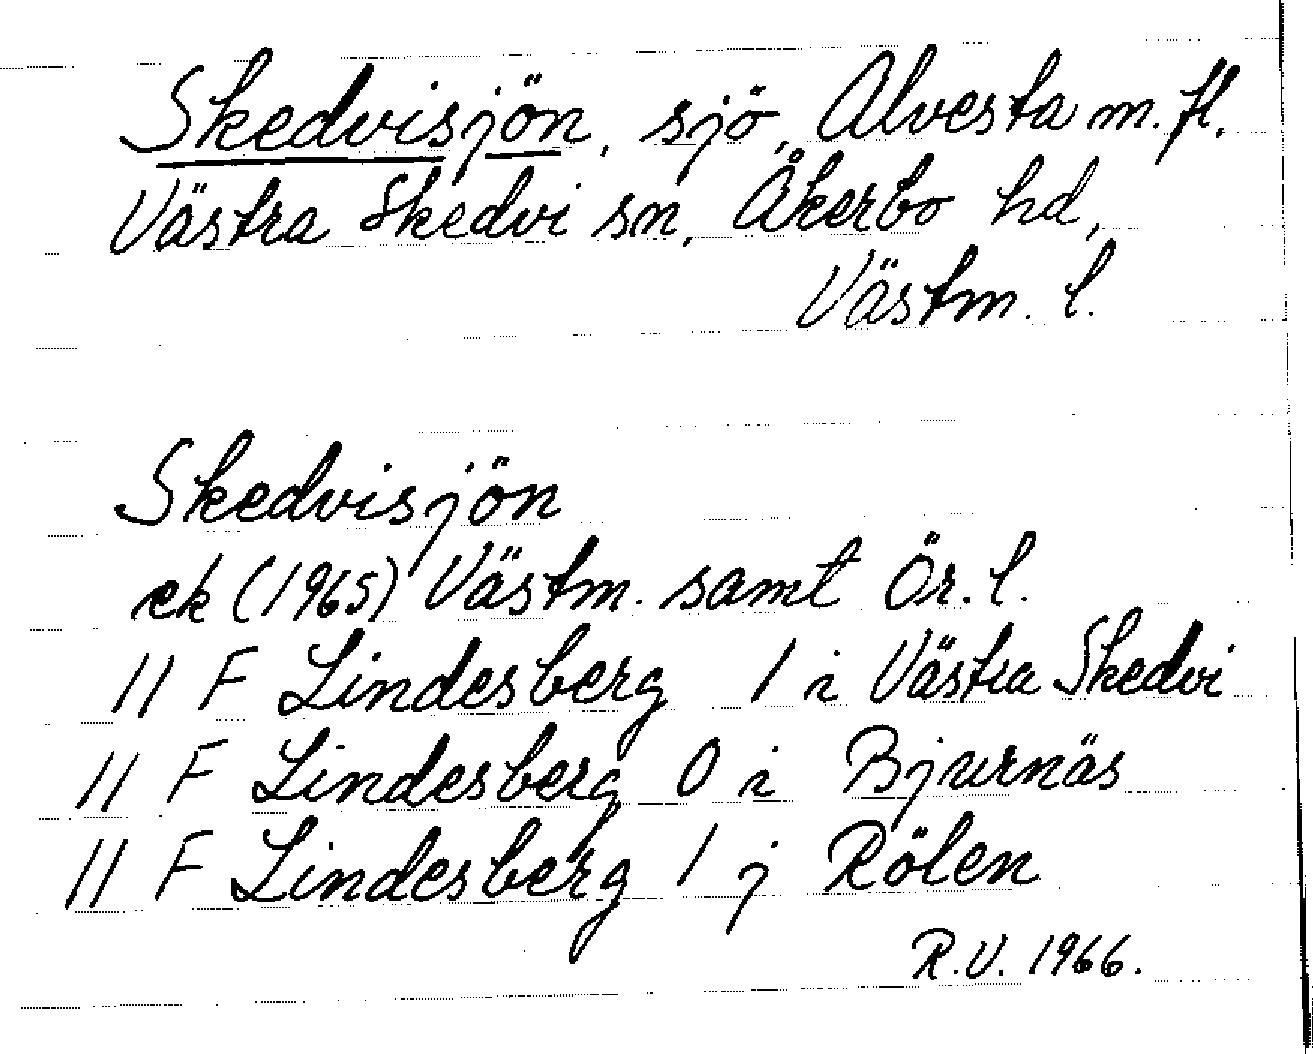 Skedvisjön, sjö, Alvesta m. fl.
Västra Skedvi sn, Åkerbo hd,
Västm. l.
Skedvisjön
ek (1965) Västm. samt Ör. l.
11 F Lindesberg 1 i Västra Skedvi
11 F Lindesberg 0 i Bjurnäs
11 F Lindesberg 1 j Rölen
R.V. 1966.